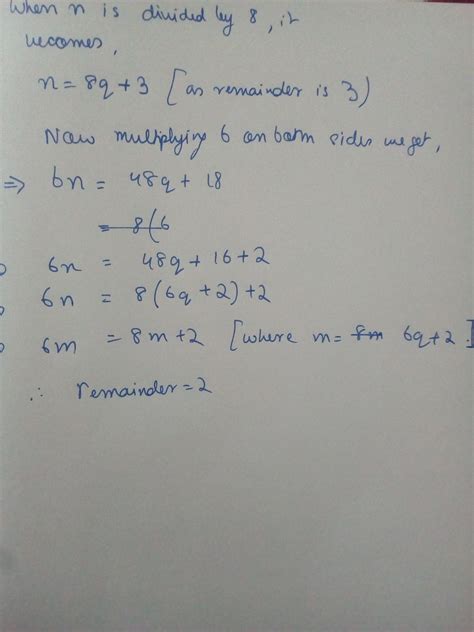 When n is divided by 8, it
becomes,
n = 8q + 3 [as remainder is 3)
Now multiplying 6 on both sides we get,
⇒ 6n = 48q + 18
= 8(6
6n = 48q + 16 + 2
6n = 8(6q + 2) + 2
6m = 8m + 2 [where m = 8m 6q + 2]
∴ remainder = 2